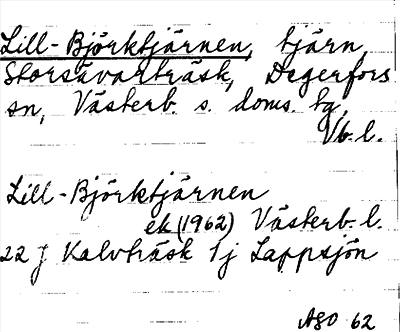 Lill-Björktjärnen, tjärn,
Storsävarträsk, Degerfors
sn, Västerb. s. doms. tg,
Vb. l.
Lill-Björktjärnen
ek (1962) Västerb. l.
22 J Kalvträsk 1j Lappsjön
ASO 62